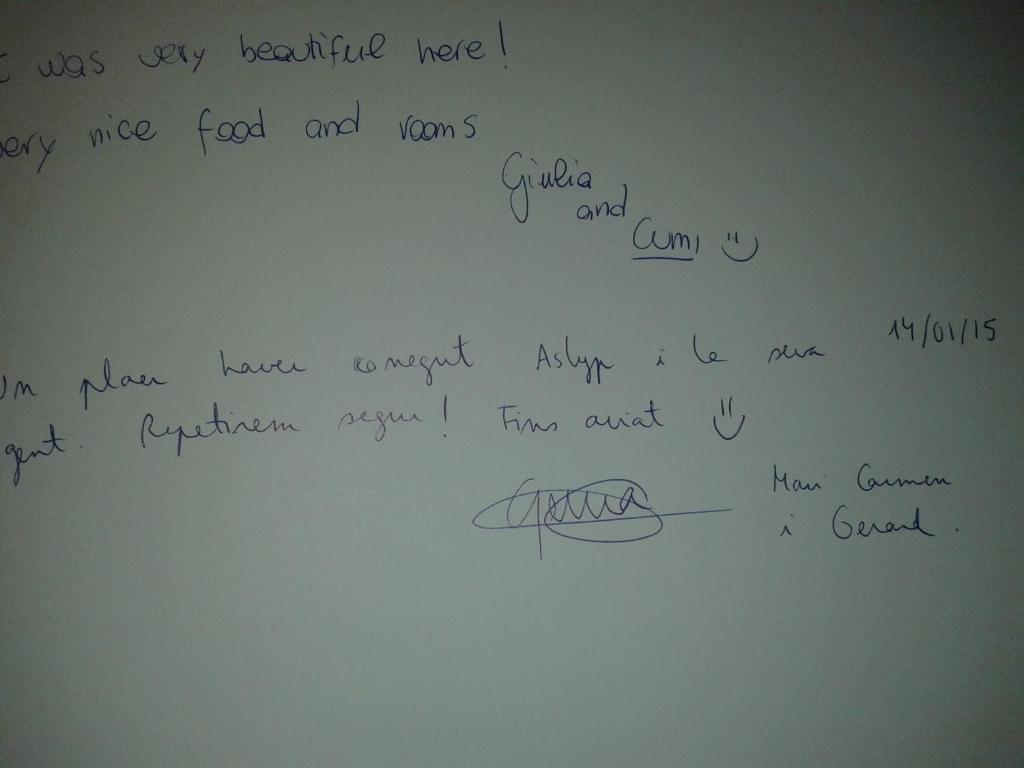 t was very beautiful here!
very nice food and rooms
Giulia
and
Cumi
14/01/15
Un plaer haver conegut Aslyp i la seva
gent. Repetirem segur! Fins aviat
Mari Carmen
i Gerard.